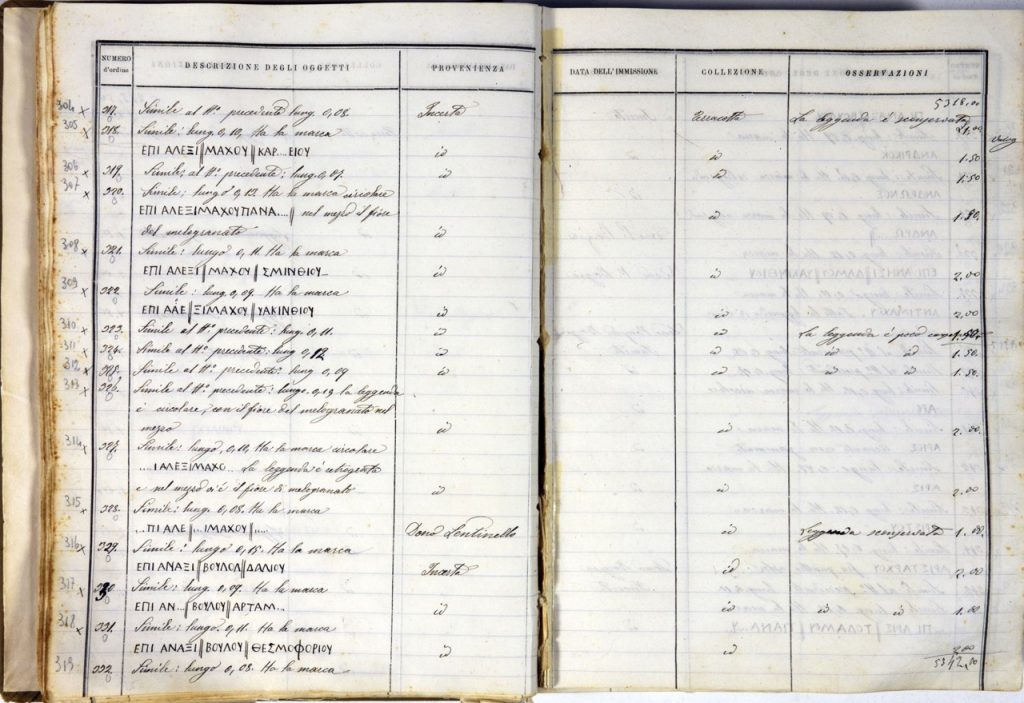 NUMERO d'ordine DESCRIZIONE DEGLI OGGETTI PROVENIENZA DATA DELL'IMMISSIONE COLLEZIONE OSSERVAZIONI
5318,00
304 x 317. Simile al N.o precedente lung. 0,08. Incerta Terracotte La leggenda è
305 x 318. Simile: lung. 0,10, Ha la marca 1,00
ΕΠΙ ΑΛΕΞΙ||ΜΑΧΟΥ||ΚΑΡ...ΕΙΟΥ id id 1.50
306 x 319. Simile al N.o precedente: lung. 0,07. id id 1.50
307 x 320. Simile: lungo 0,12. Ha la marca circolare
ΕΠΙ ΑΛΕΞΙΜΑΧΟΥΠΑΝΑ....|| nel mezzo il fiore 1.80.
del melogranato id id
308 x 321. Simile: lungo 0,11. Ha la marca
ΕΠΙ ΑΛΕΞΙ||ΜΑΧΟΥ||ΣΜΙΝΘΙΟΥ id id 2.00
309 x 322. Simile: lung. 0,09. Ha la marca
ΕΠΙ ΑΛΕ||ΞΙΜΑΧΟΥ||ΥΑΚΙΝΘΙΟΥ id id 2,00
310 x 323. Simile al N.o precedente: lung. 0,11. id id La leggenda è poco
311 x 324. Simile al N.o precedente: lung 0,12 id id id id 1.50.
312 x 325. Simile al N.o precedente: lung 0,09 id id id id 1.50
313 x 326. Simile al N.o precedente: lungo. 0,12 la leggenda
è circolare, con il fiore del melogranato nel
mezzo id id 2.00.
314 x 327. Simile: lungo 0,10. Ha la marca circolare
....ΙΑΛΕΞΙΜΑΧΟ... La leggenda è retrograda
e nel mezzo vi è il fiore di melogranato id id 2,00
315 328. Simile: lung. 0,08. Ha la marca
...ΠΙ ΑΛΕ||...ΙΜΑΧΟΥ||..... Dono Lentinello id Leggenda 1.00.
316 x 329. Simile: lungo 0,15. Ha la marca
ΕΠΙ ΑΝΑΞΙ||ΒΟΥΛΟΥ||ΔΑΛΙΟΥ Incerta id 2,00
317 x 330. Simile: lung. 0,09. Ha la marca
ΕΠΙ ΑΝ...||ΒΟΥΛΟΥ||ΑΡΤΑΜ... id id id id 1.00
318 x 331. Simile: lungo. 0,11. Ha la marca
ΕΠΙ ΑΝΑΞΙ||ΒΟΥΛΟΥ||ΘΕΣΜΟΦΟΡΙΟΥ id id 2,00
319 332. Simile: lungo 0,08. Ha la marca 5342,80